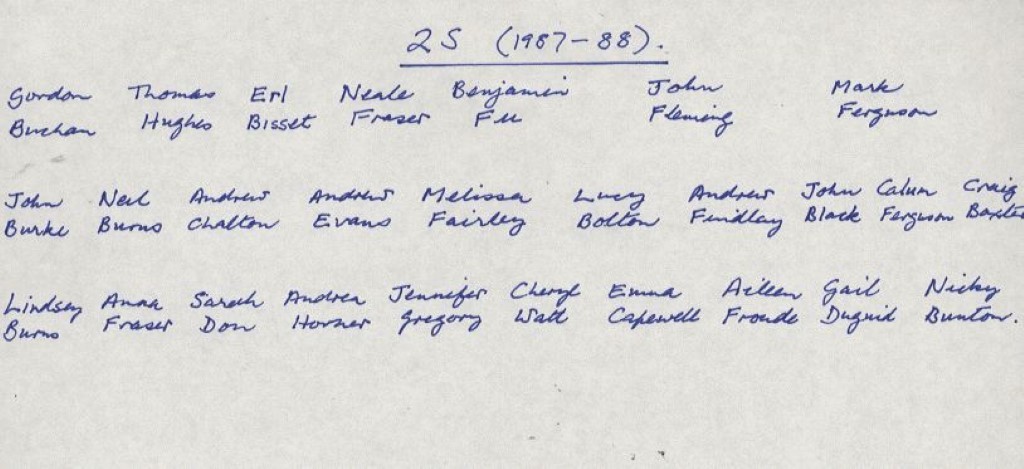 2S (1987-88).
Gordon Thomas Erl Neale Benjamin John Mark
Buchan Hughes Bisset Fraser Fu Fleming Ferguson
John Neil Andrew Andrew Melissa Lucy Andrew John Calum Craig
Burke Burns Chalton Evans Fairley Bolton Findlay Black Ferguson Baxter
Lindsey Anna Sarah Andrea Jennifer Cheryl Emma Aileen Gail Nicky
Burns Fraser Don Horner Gregory Watt Capewell Froude Duguid Bunton.